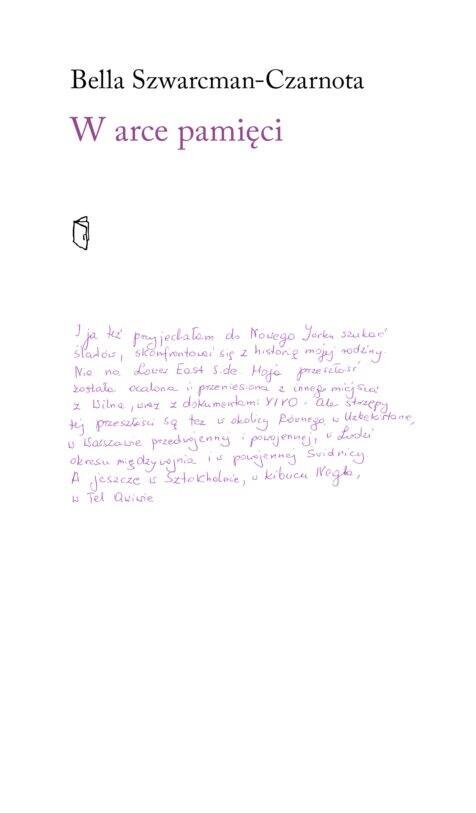 Bella Szwarcman-Czarnota
W arce pamięci
I ja też przyjechałam do Nowego Jorku szukać
śladów, skonfrontować się z historią mojej rodziny.
Nie na Lower East Side. Moja przeszłość
została ocalona i przeniesiona z innego miejsca
z Wilna, wraz z dokumentami YIVO. Ale strzępy
tej przeszłości są też w okolicy Równego, w Uzbekistanie,
w Warszawie przedwojennej i powojennej, w Łodzi
okresu międzywojnia i w powojennej Świdnicy
A jeszcze w Sztokholmie, w kibucu Negba,
w Tel Awiwie